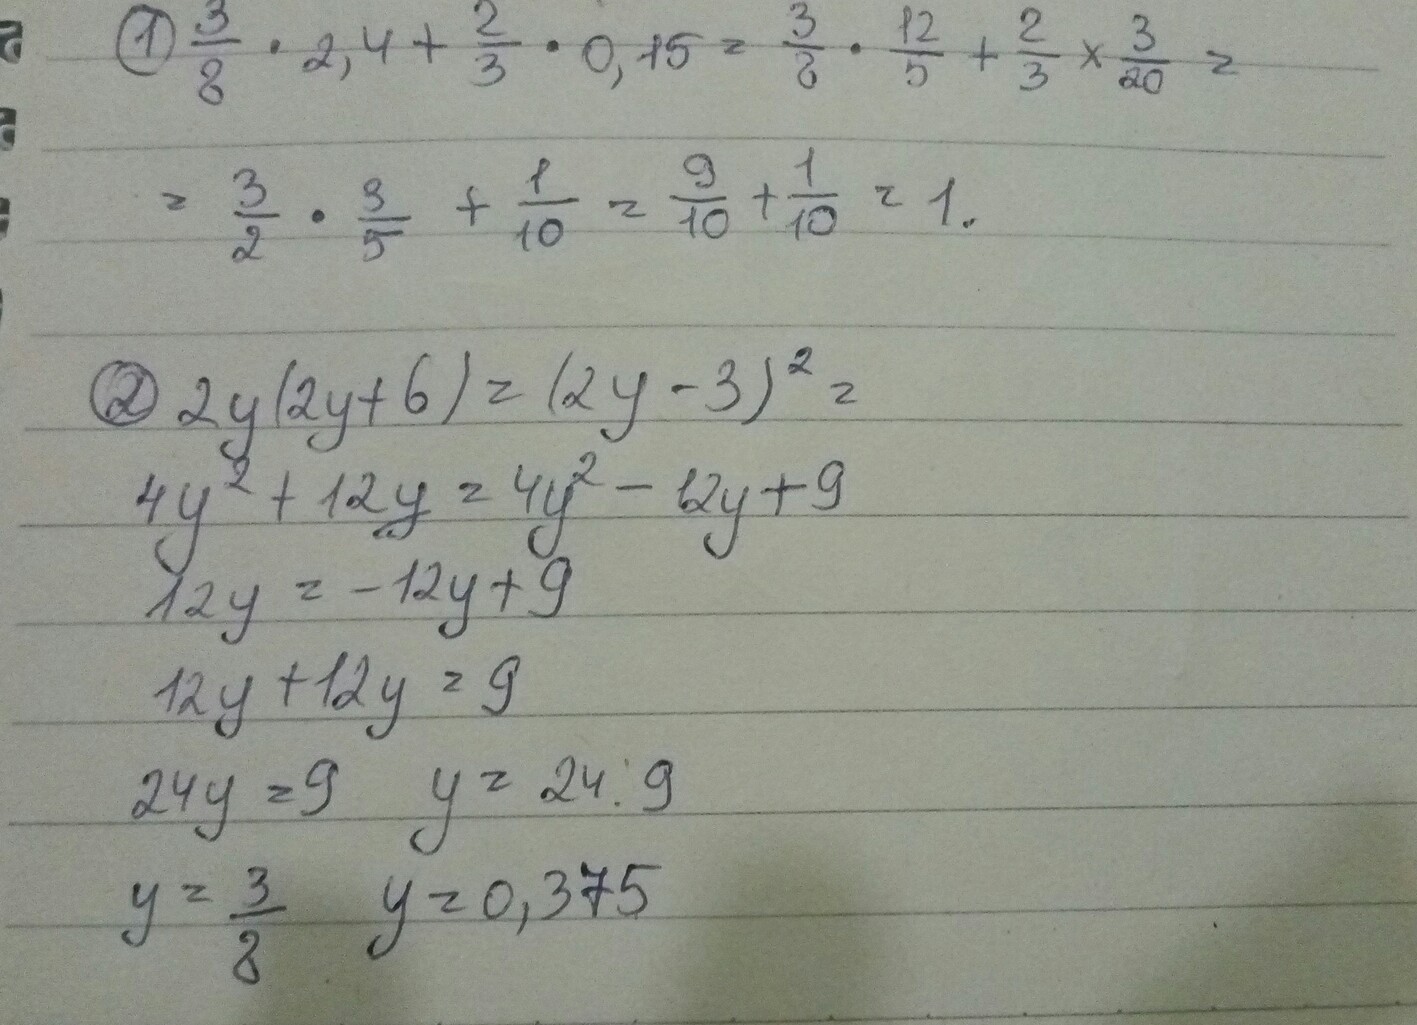 ① 3/8 · 2,4 + 2/3 · 0,15 = 3/8 · 12/5 + 2/3 × 3/20 =
= 3/2 · 3/5 + 1/10 = 9/10 + 1/10 = 1.
② 2y(2y+6) = (2y-3)² =
4y² + 12y = 4y² - 12y + 9
12y = -12y + 9
12y + 12y = 9
24y = 9 y = 24:9
y = 3/8 y = 0,375